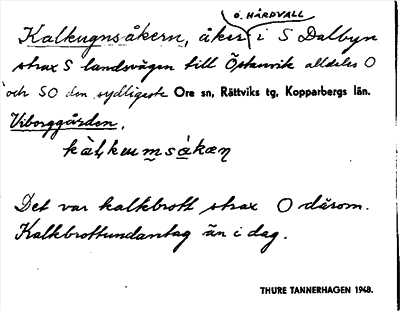 Ö. HÅRDVALL
Kalkugnsåkern, åker i S Dalbyn
strax S landsvägen till Östanvik alldeles O
och SO den sydligaste Ore sn, Rättviks tg, Kopparbergs län.
Viborggården.
Det var kalkbrott strax O därom.
Kalkbrottundantag än i dag.
THURE TANNERHAGEN 1948.